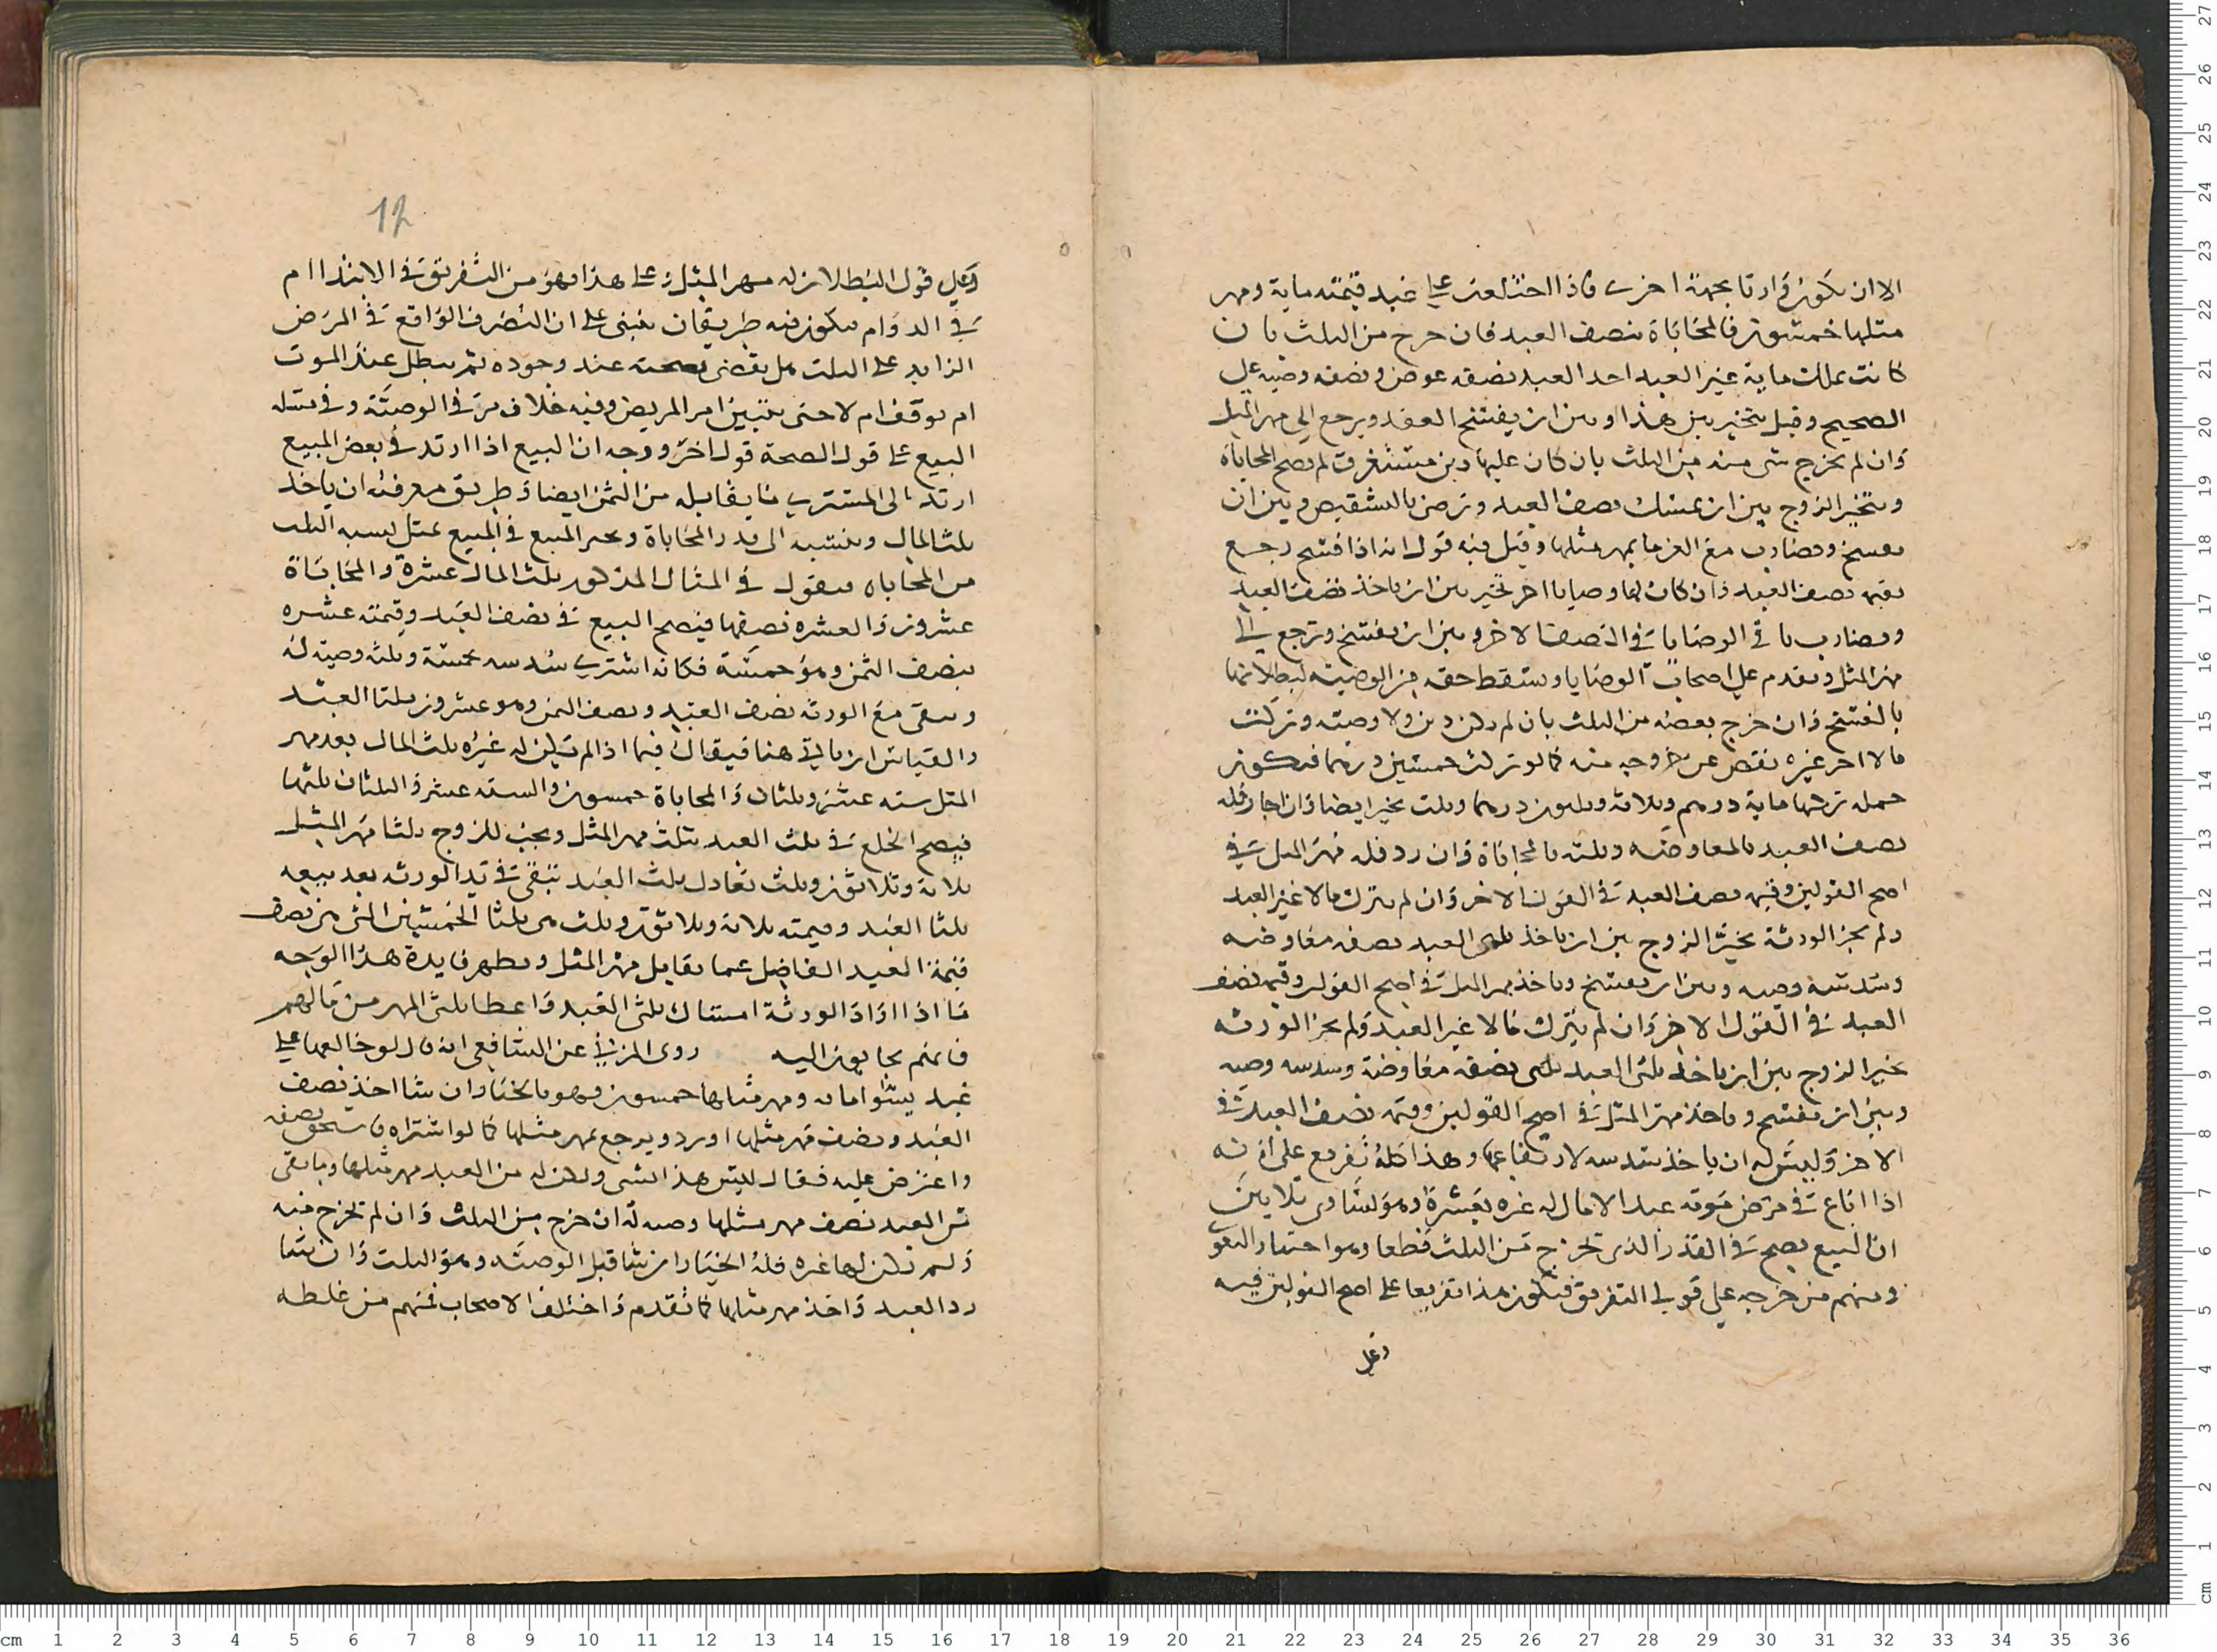 الا ان يكون وارثا بجهة اخرى فاذا اختلعت علي عبد قيمته ماية ومهر
مثلها خمسون فالمحاباة بنصف العبد فان خرج من الثلث بان
كانت تملك ماية غير العبد اخذ العبد نصفه عوض ونصفه وصية علي
الصحيح وقيل يتخير بين هذا وبين ان يفسخ العقد ويرجع الي مهر المثل
وان لم يخرج شي منه من الثلث بان كان عليها دين مستغرق لم تصح المحاباة
ويتخير الزوج بين ان يمسك نصف العبد ويرضى بالتشقيص وبين ان
يفسخ ويضارب مع الغرما بمهر مثلها وقيل فيه قول انه اذا فسخ رجع
بقيمة نصف العبد وان كان لها وصايا اخر تخير بين ان ياخذ نصف العبد
ويضارب باقي الوصايا في النصف الاخر وبين ان يفسخ ويرجع الي
مهر المثل ويقدم علي اصحاب الوصايا ويسقط حقه من الوصية لبطلانها
بالفسخ وان خرج بعضه من الثلث بان لم يكن دين ولا وصية وتركت
مالا اخر غيره نقص عن خروجه منه كما لو تركت خمسين درهما فيكون
جملة تركتها ماية درهم وثلاثة وثلثون درهما وثلث تخير ايضا فان اجاز فله
نصف العبد بالمعاوضه وثلثه بالمحاباة وان رد فله مهر المثل في
اصح القولين وقيمة نصف العبد في القول الاخر وان لم تترك مالا غير العبد
ولم يجز الورثة تخير الزوج بين ان ياخذ ثلثي العبد نصفه معاوضه
وسدسه وصيه وبين ان يفسخ وياخذ مهر المثل في اصح القولين وقيمة نصف
العبد في القول الاخر وان لم تترك مالا غير العبد ولم يجز الورثه
تخير الزوج بين ان ياخذ ثلثي العبد نصفه معاوضة وسدسه وصيه
وبين ان يفسخ وياخذ مهر المثل في اصح القولين وقيمة نصف العبد في
الاخر وليس له ان ياخذ سدسه لارتفاعها وهذا كله تفريع على انه
اذا باع في مرض موته عبدا لا مال له غيره بعشرة وهو يساوي ثلاثين
ان البيع يصح في القدر الذي يخرج من الثلث قطعا وهو اختيار البغوي
ومنهم من خرجه علي قولي التفريق فيكون هذا تفريعا على اصح القولين فيه
وعلى
وعلي قول البطلان له مهر المثل علي هذا فهو من التفريق في الابتدا ام
في الدوام فيكون فيه طريقان يبنى علي ان التصرف الواقع في المرض
الزايد علي الثلث هل يقضى بصحته عند وجوده ثم يبطل عند الموت
ام يوقف ام لا حتى يتبين امر المريض وفيه خلاف مر في الوصية وفي مسئلة
البيع علي قول الصحة قول اخر ووجه ان البيع اذا ارتد في بعض المبيع
ارتد الى المشتري ما يقابله من الثمن ايضا وطريق معرفته ان ياخذ
ثلث المال وينسبه الى قدر المحاباة ويجيز البيع في المبيع بمثل نسبه الثلث
من المحاباه فيقول في المثال المذكور ثلث المال عشرة والمحاباة
عشرون والعشرة نصفها فيصح البيع في نصف العبد وقيمته عشره
بنصف الثمن وهو خمسة فكانه اشترى سدسه بخمسة وثلثه وصية له
ويبقى مع الورثه نصف العبد ونصف الثمن وهو عشرون ثلثا العبد
والقياس ان ياتي هنا فيقال فيما اذا لم يكن له غيره ثلث المال بعد مهر
المثل سته عشر وثلثان والمحاباة خمسون والسته عشر والثلثان ثلثها
فيصح الخلع في ثلث العبد بثلث مهر المثل ويجب للزوج ثلثا مهر المثل
ثلاثة وثلاثون وثلث تعادل ثلث العبد تبقى في يد الورثه بعد بيعه
ثلثا العبد وقيمته ثلاثة وثلاثون وثلث من ثلثا الخمسين التي من نصف
قيمة العبد الفاضل عما يقابل مهر المثل ويظهر فايدة هذا الوجه
ما اذا اراد الورثة امساك ثلثي العبد واعطا ثلثي المهر من مالهم
فانهم يجابون اليه روى المزني عن الشافعي انه قال لو خالعها علي
عبد يسوا ماية ومهر مثلها خمسون فهو بالخيار ان شا اخذ نصف
العبد ونصف مهر مثلها او رد ويرجع بمهر مثلها كما لو اشتراه فاستحق نصفه
واعترض عليه فقال ليس هذا بشي ولكن له من العبد مهر مثلها وما بقى
من العبد نصف مهر مثلها وصيه له ان خرج من الثلث وان لم تخرج منه
ولم يكن لها غيره فله الخيار ان شا قبل الوصية وهو الثلث وان شا
رد العبد واخذ مهر مثلها كما تقدم واختلف الاصحاب فمنهم من غلطه